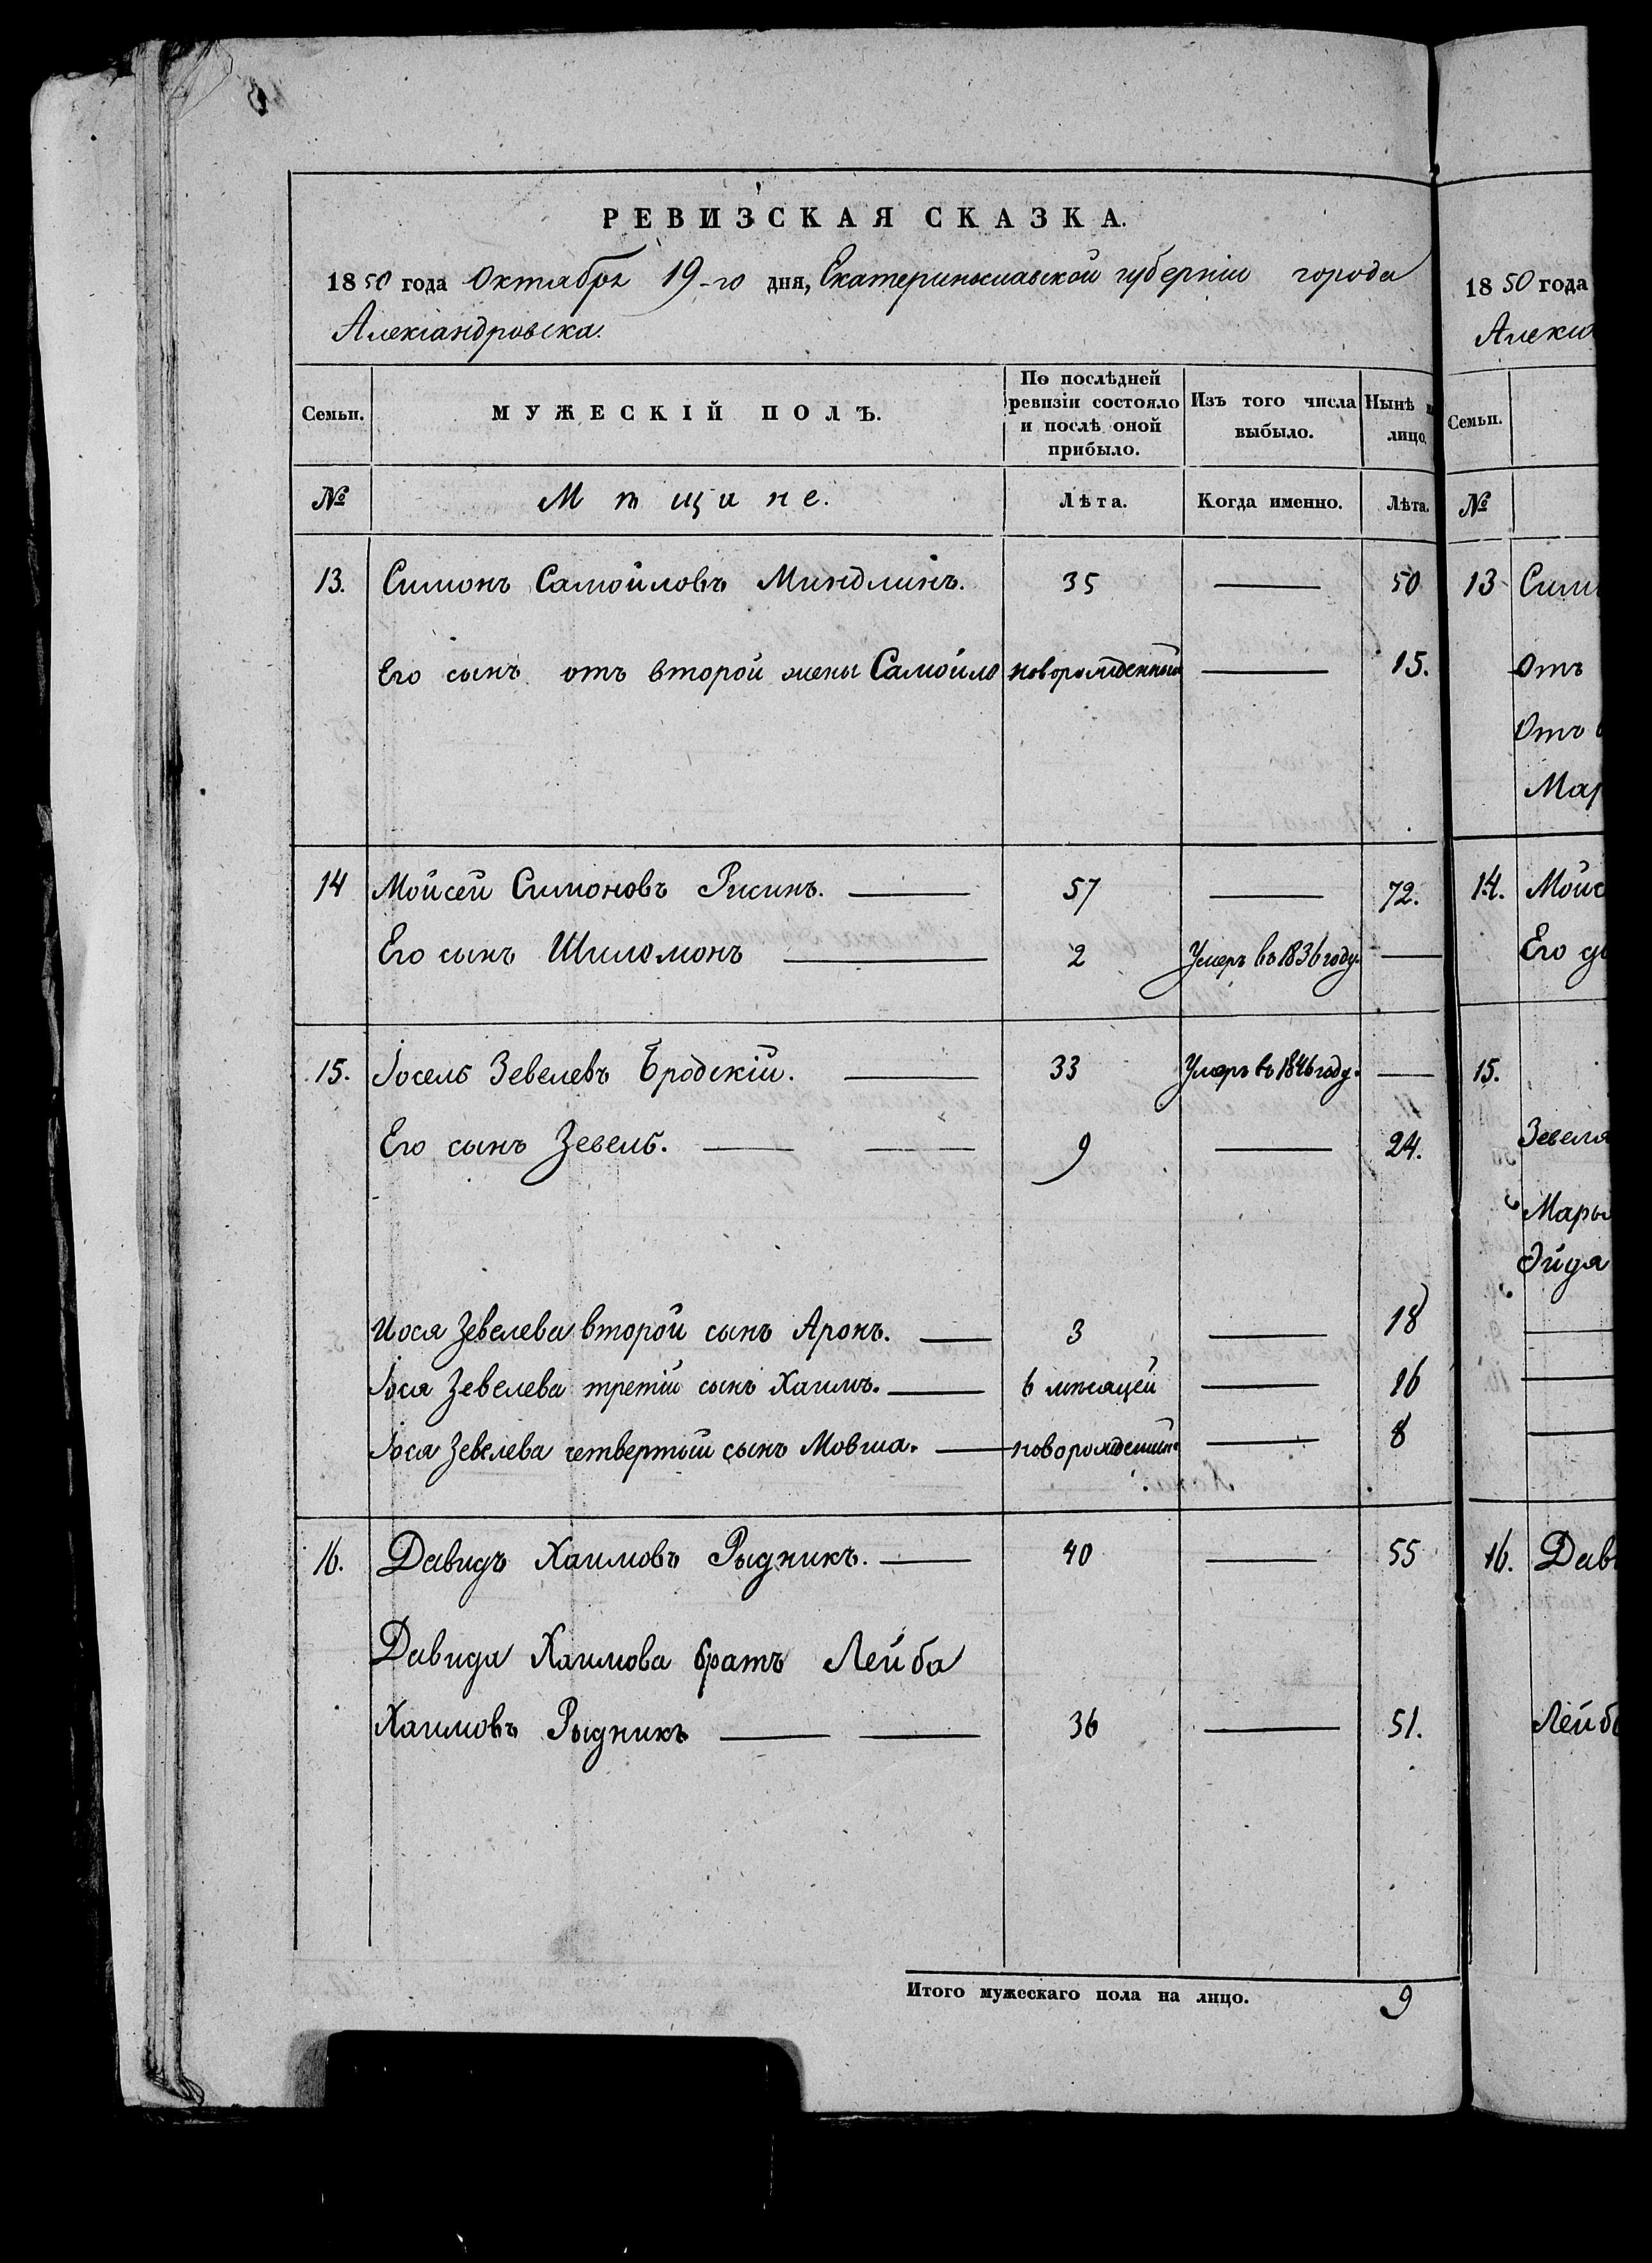 РЕВИЗСКАЯ СКАЗКА.
1850 года Октября 19-го дня, Екатеринославской губерніи города
Александровска.
Семьи. МУЖЕСКІЙ ПОЛЪ. По послѣдней ревизіи состояло и послѣ оной прибыло. Изъ того числа выбыло. Нынѣ на лицо.
№ Мѣщане. Лѣта. Когда именно. Лѣта.
13. Симонъ Самойловъ Миндлинъ. 35 — 50
Его сынъ отъ второй жены Самойло новорожденный — 15.
14 Мойсей Симоновъ Рисинъ. — 57 — 72.
Его сынъ Шиломонъ — 2 Умеръ въ 1836 году. —
15. Іосель Зевелевъ Бродскій. — 33 Умеръ въ 1846 году. —
Его сынъ Зевель. — — 9 — 24.
Иося Зевелева второй сынъ Аронъ. — 3 — 18
Іося Зевелева третій сынъ Хаимъ. — 6 мѣсяцей — 16
Іося Зевелева четвертый сынъ Мовша. — новорожденный — 8
16. Давидъ Хаимовъ Рыдникъ. — 40 — 55
Давида Хаимова братъ Лейба
Хаимовъ Рыдникъ — — 36 — 51.
Итого мужескаго пола на лицо. 9
1850 года
Семьи.
№
13
Отъ
Отъ
14.
Его
15.
Зевеля
Эйдя
16.